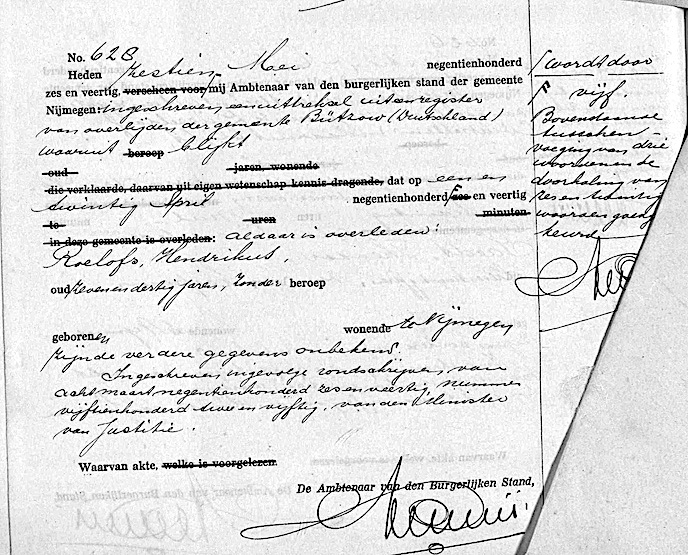 No. 628
Heden zestien Mei negentienhonderd
zes en veertig, verscheen voor mij Ambtenaar van den burgerlijken stand der gemeente
Nijmegen: ingeschreven een uittreksel uit een register
van overlijden der gemeente Bützow (Duitschland)
waaruit beroep blijkt
oud jaren, wonende
die verklaarde, daarvan uit eigen wetenschap kennis dragende, dat op een en
twintig April negentienhonderd zes en veertig
te uren minuten
in deze gemeente is overleden: aldaar is overleden:
Roelofs, Hendrikus,
oud zevenendertig jaren, zonder beroep
geboren en wonende te Nijmegen
zijnde verdere gegevens onbekend.
Ingeschreven ingevolge rondschrijven van
acht maart negentienhonderd zes en veertig, nummer
vijftienhonderd twee en vijftig, van den Minister
van Justitie.
Waarvan akte, welke is voorgelezen.
De Ambtenaar van den Burgerlijken Stand,
wordt door
vijf.
Bovenstaande
tusschen-
voeging van drie
woorden en de
doorhaling van
zes en twintig
woorden goedge
keurd.